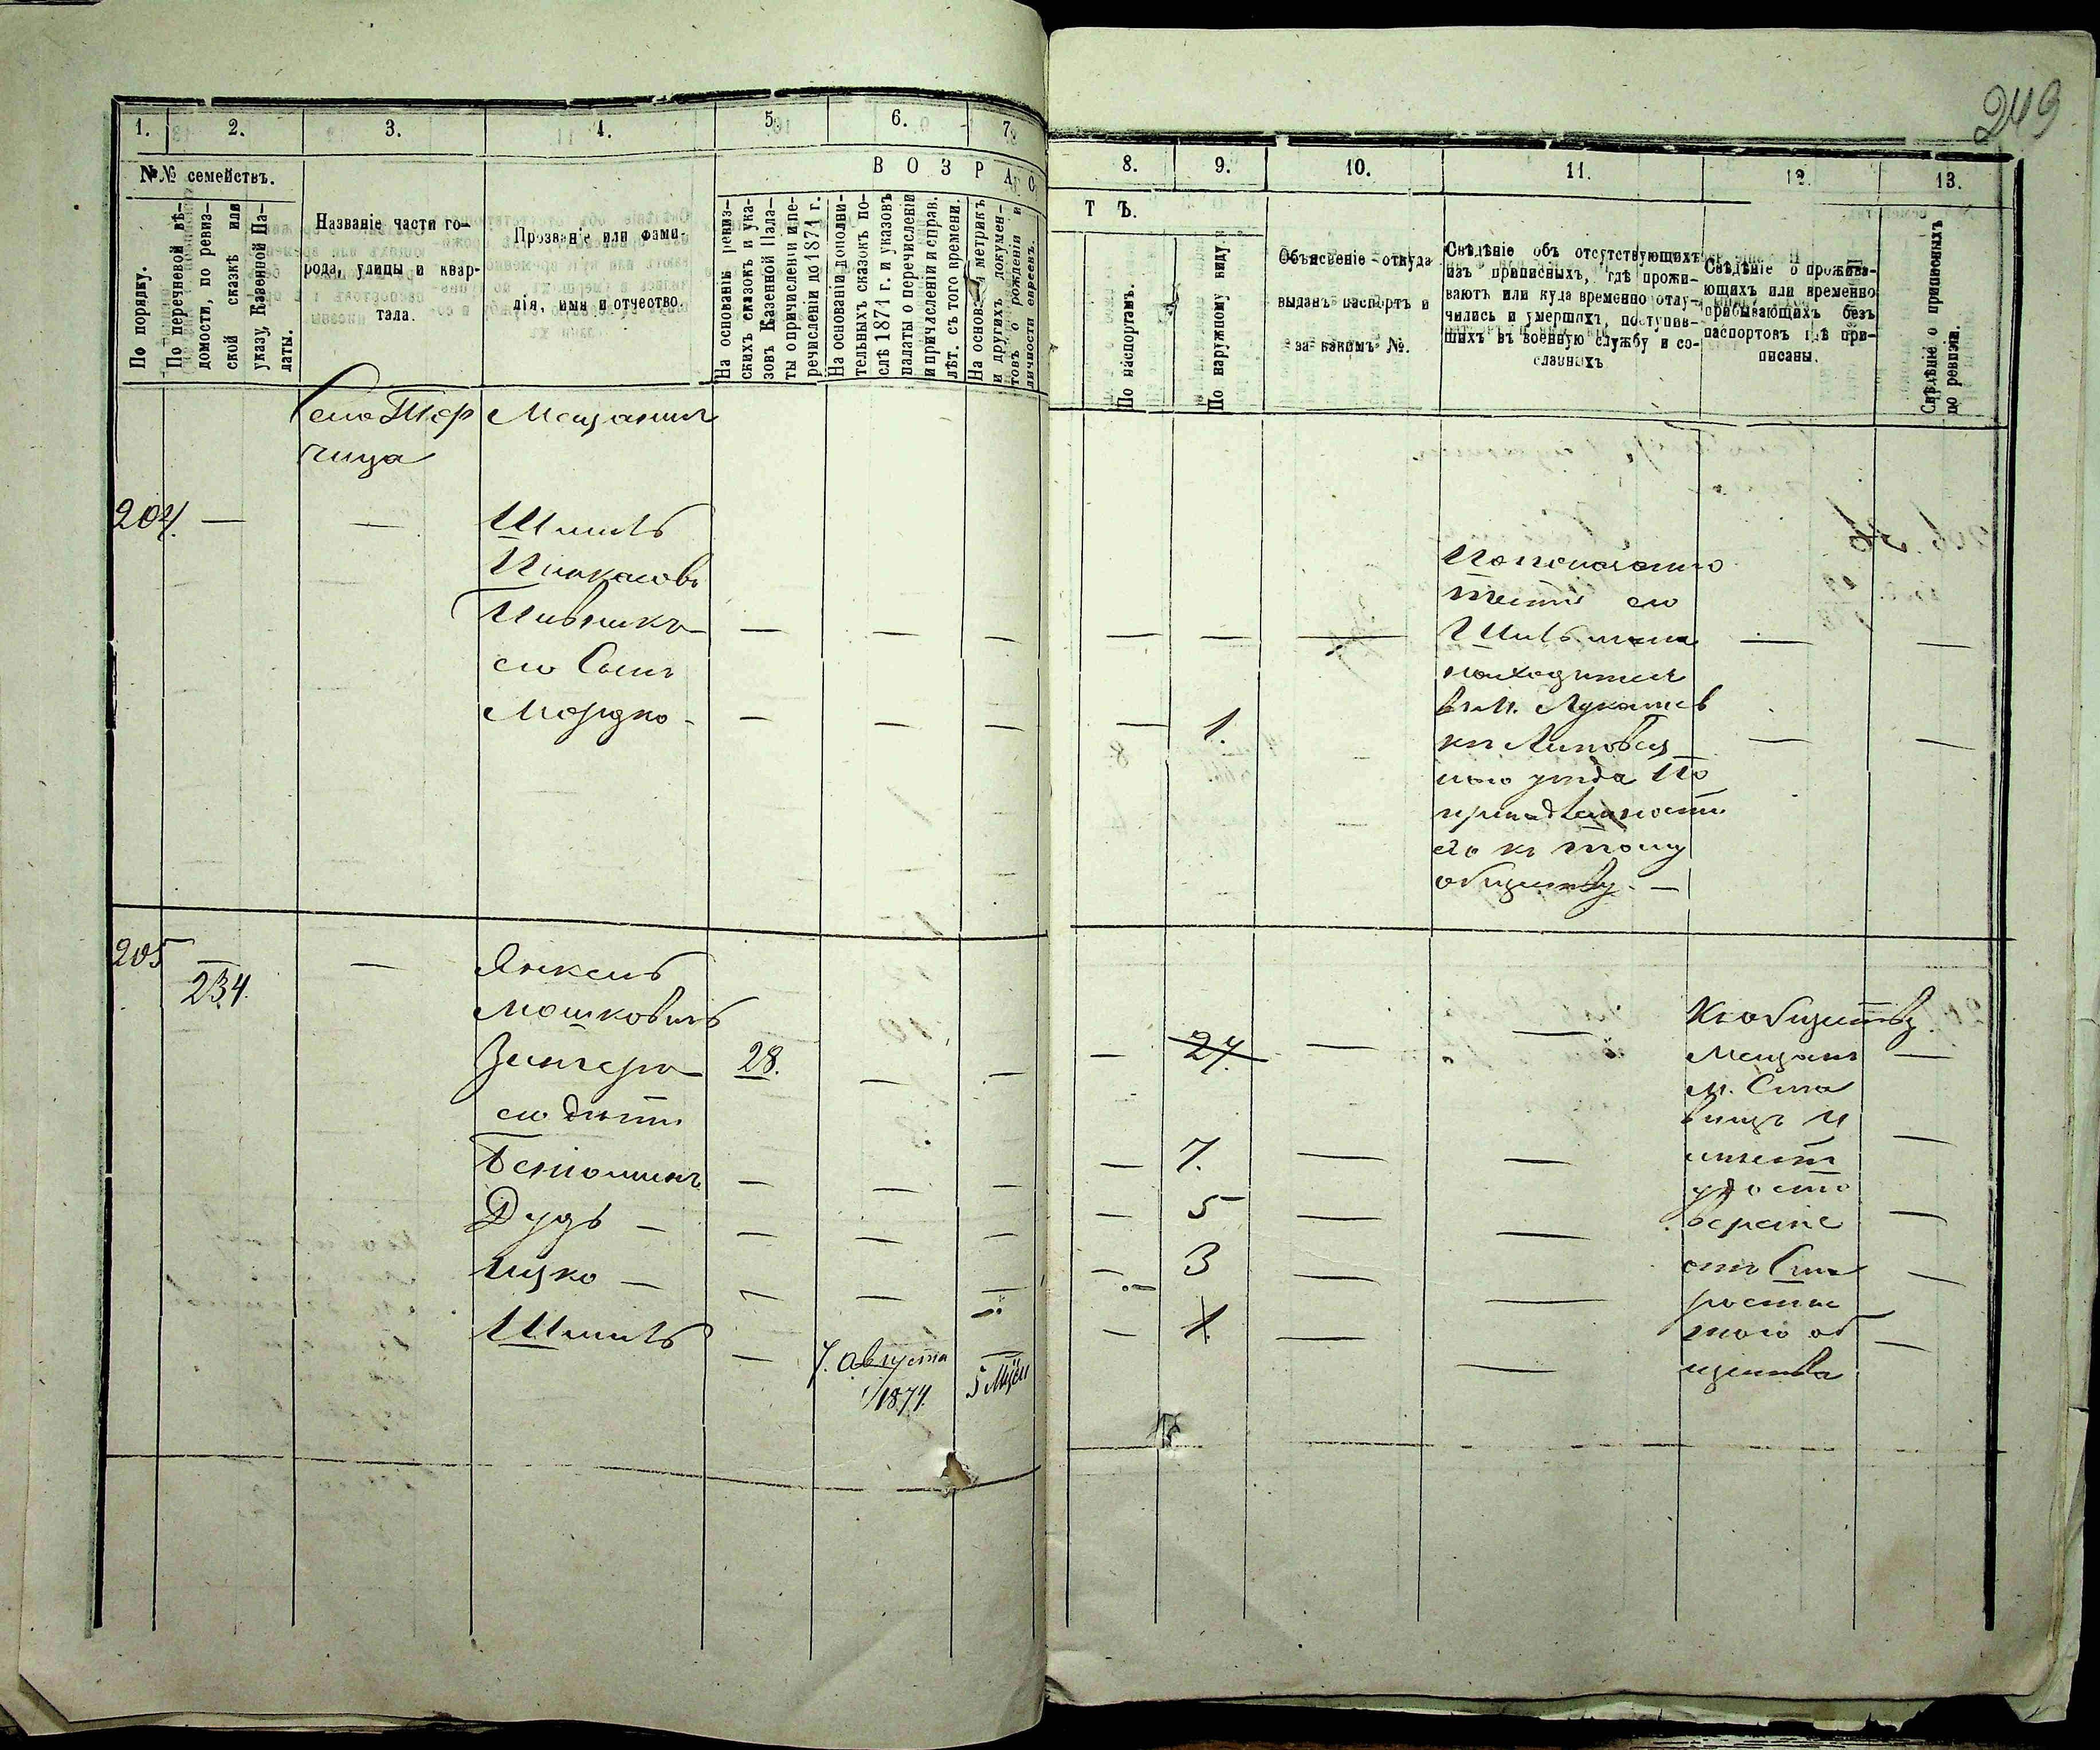 249
1. 2. 3. 4. 5. 6. 7.
8. 9. 10. 11. 12. 13.
№№ семействъ.
По порядку.
По перечневой вѣ-
домости, по ревиз-
ской сказкѣ или
указу, Казенной Па-
латы.
Названіе части го-
рода, улицы и квар-
тала.
Прозваніе или фами-
лія, имя и отчество.
В О З Р А С
Т Ъ.
На основаніи ревиз-
скихъ сказокъ и ука-
зовъ Казенной Пала-
ты о причисленіи и пе-
речисленіи до 1871 г.
На основаніи дополни-
тельныхъ сказокъ по-
слѣ 1871 г. и указовъ
палаты о перечисленіи
и причисленіи и справ.
лѣт. съ того времени.
На основаніи метрикъ
и другихъ докумен-
товъ о рожденіи и
личности евреевъ.
По паспортамъ.
По наружному виду.
Объясненіе откуда
выданъ паспортъ и
за какимъ №.
Свѣдѣніе объ отсутствующихъ
изъ приписныхъ, гдѣ прожи-
ваютъ или куда временно отлу-
чились и умершихъ, поступив-
шихъ въ военную службу и со-
сланныхъ
Свѣдѣніе о прожива-
ющихъ или временно
прибывающихъ безъ
паспортовъ гдѣ при-
писаны.
Свѣдѣніе о приписныхъ
по ревизіи.
Село Тер
чица
Мещанинъ
204. — —
Шмиль
Пинкасовъ
Пивникъ — — — —
его Сынъ
Мордко - — — — — 1.
По показанію
тестя его
Шильмана
находится
въ м. Лукашев
кѣ Липовец
каго уѣзда По
принадлежности
его къ тому
обществу. —
205 234. —
Янкель
Мошковичъ
Зингеръ — 28. — — — 27. —
его дѣти
Беніоминъ — — — — 7. — —
Дудь — — — — — 5 — —
Ицко — — — — — 3 — —
Шмиль — 7. Августа 1874. 5 Мѣся — 1. — —
Къ обществу
Мещанъ
м. Ста
вищъ и
имеет
удосто
вереніе
отъ Ста
росты
того об
щества